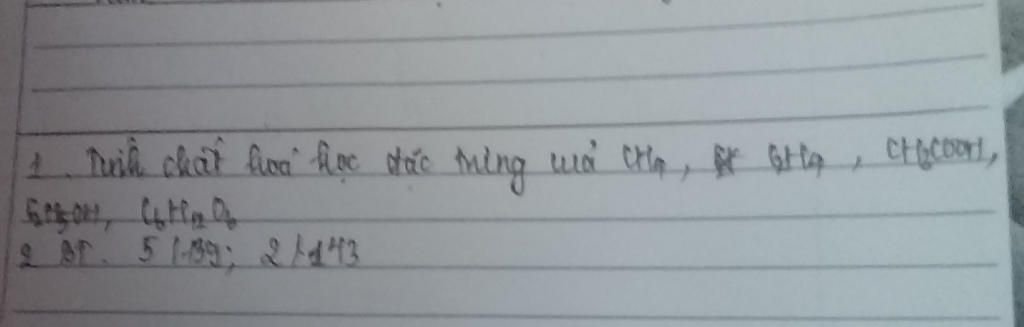 1. Tính chất hoá học đặc trưng của CH4, C2H4, CH3COOH,
C2H5OH, C6H12O6
2 BT. 5/139; 2/143